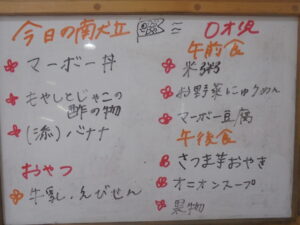 今日の南大丘
マーボー丼
もやしとじゃこの
酢の物
(添)バナナ
おやつ
牛乳・えびせん
0才児
午前食
米粥
野菜にゅうめん
マーボー豆腐
午後食
さつま芋おやき
オニオンスープ
果物